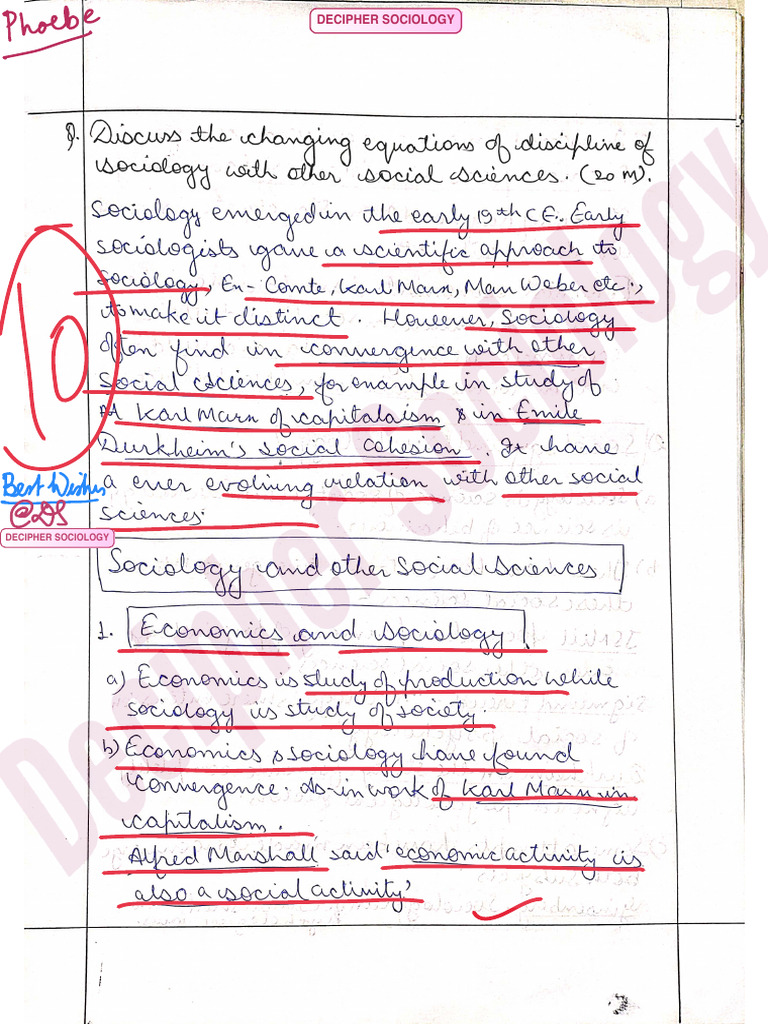 Phoebe
DECIPHER SOCIOLOGY
Q. Discuss the changing equations of discipline of
sociology with other social sciences. (20 M).
Sociology emerged in the early 19th CE. Early
sociologists gave a scientific approach to
sociology, Ex- Comte, Karl Marx, Max Weber etc.,
to make it distinct. However, Sociology
often find in convergence with other
social sciences, for example in study of
Karl Marx of capitalaism & in Emile
Durkheim's social Cohesion. It have
a ever evolving relation with other social
sciences.
10
Best Wishes
@DS
DECIPHER SOCIOLOGY
Sociology and other Social Sciences
1. Economics and sociology
a) Economics is study of production while
sociology is study of society
b) Economics & sociology have found
convergence. As in work of Karl Marx in
capitalism.
Alfred Marshall said 'economic activity is
also a social activity'
Decipher Sociology